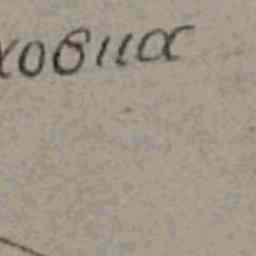 ховиа